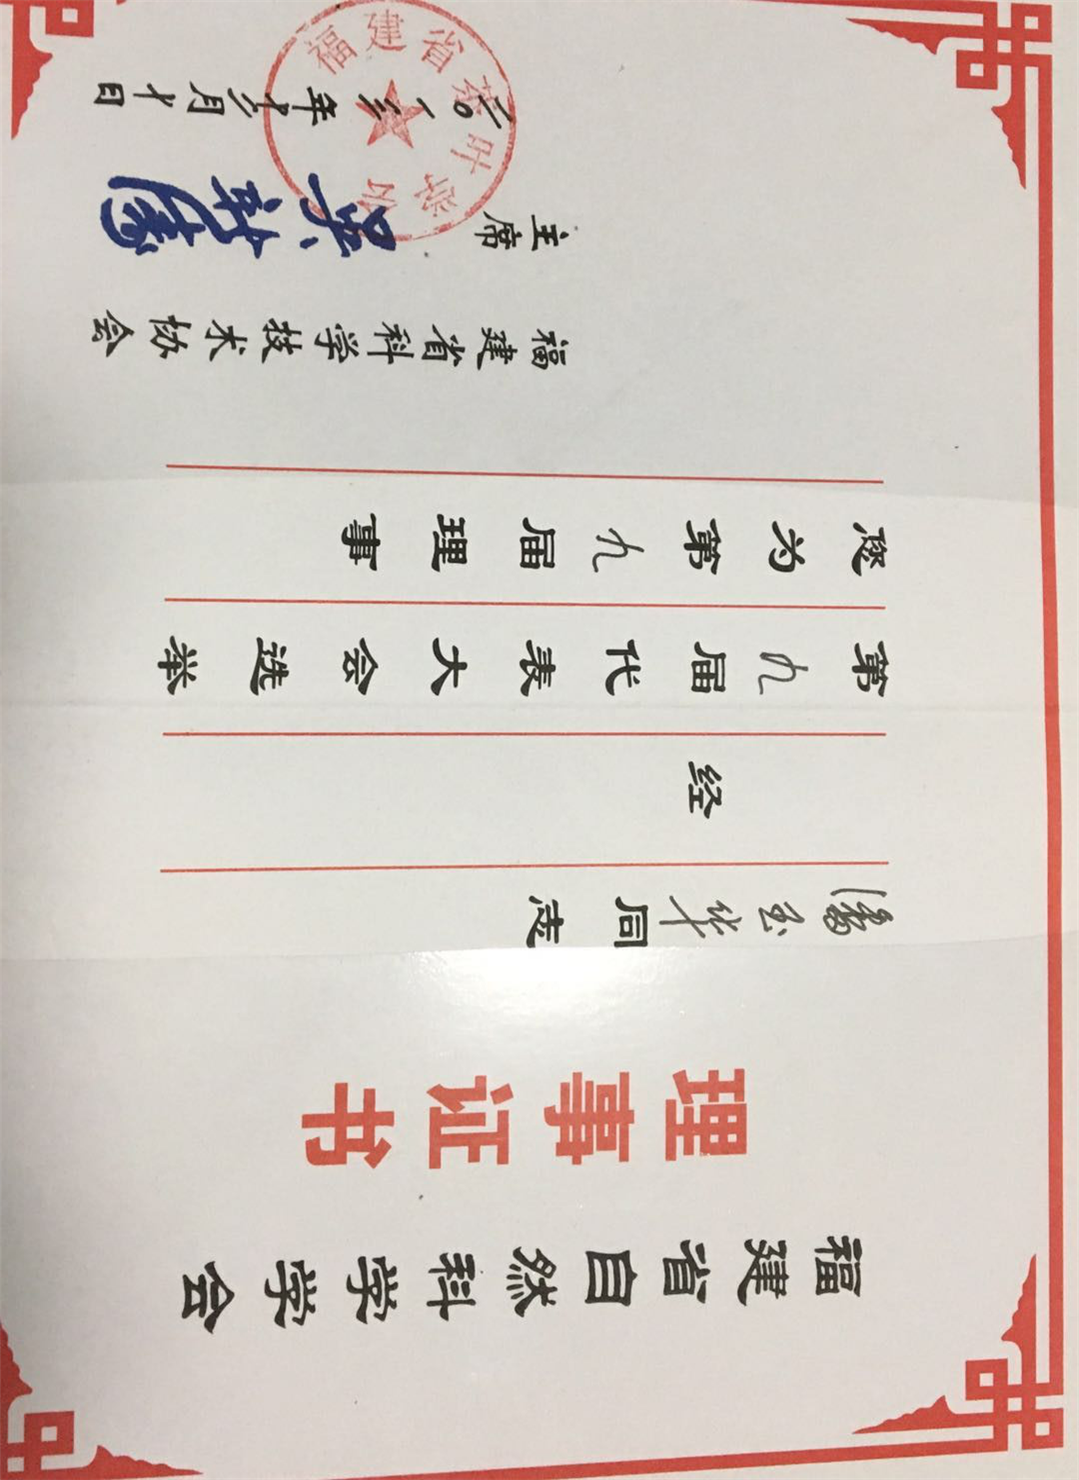 福建省自然科学学会
理事证书
潘玉华同志
经
第九届代表大会选举
您为第九届理事
福建省科学技术协会
主席 吴新涛
二〇一三年十二月十日
福建省茶叶学会